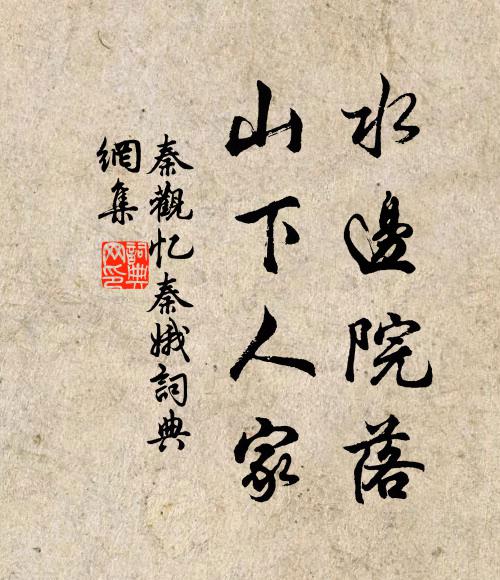 水邊院落
山下人家
秦觀忆秦娥詞典
網集
詞典
网印